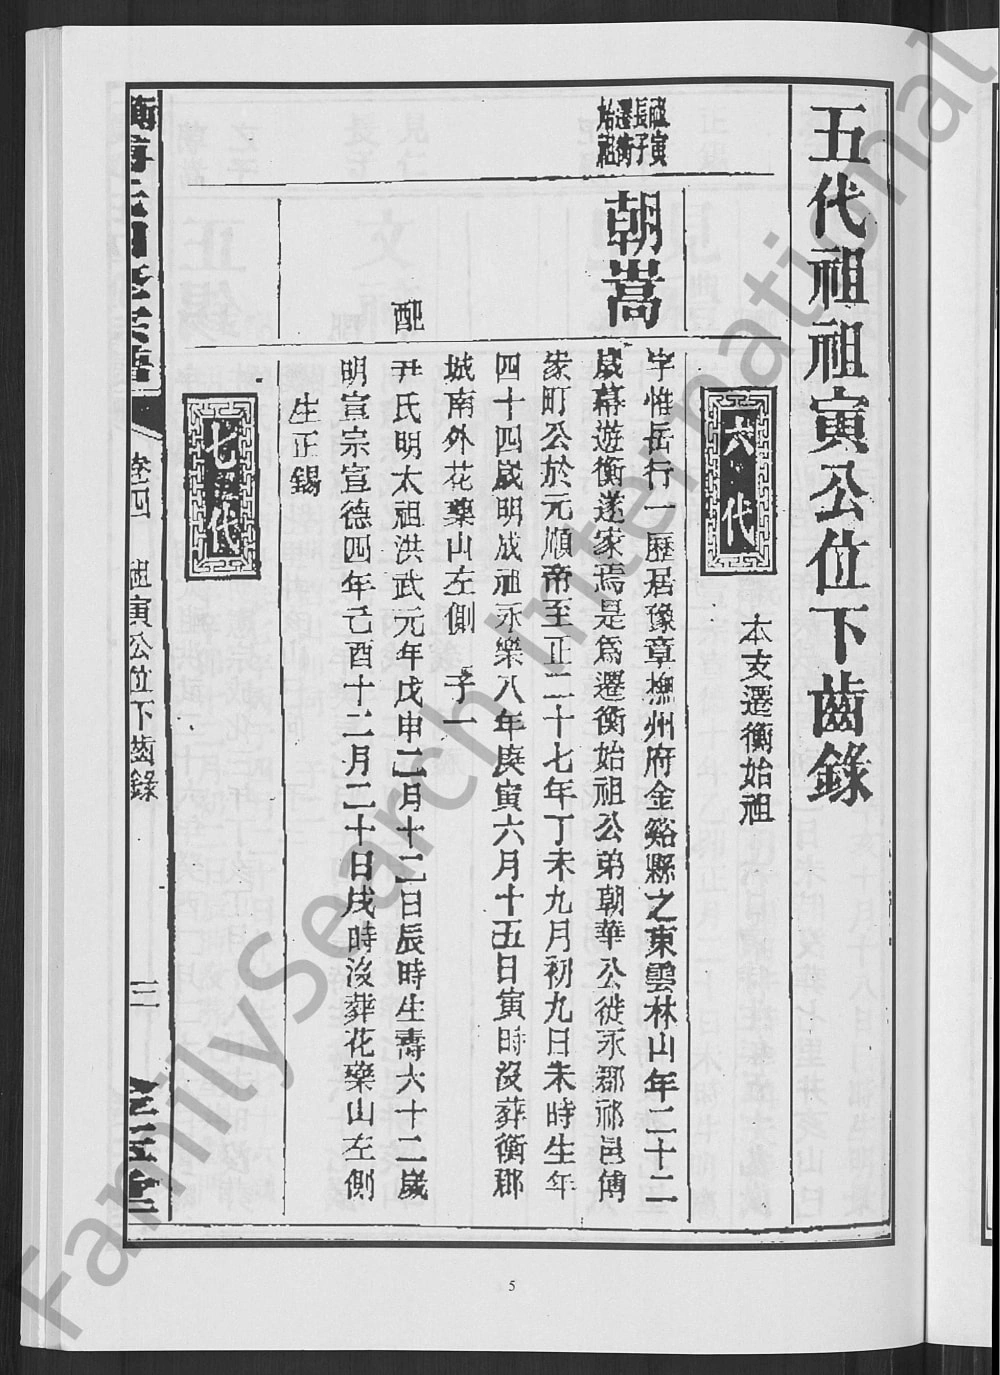 五代祖祖寅公位下齒錄
六代
本支遷衡始祖
祖寅
長子
遷衡
始祖
朝嵩
字惟岳行一歷居豫章撫州府金谿縣之東雲林山年二十二
歲幕遊衡遂家焉是爲遷衡始祖公弟朝華公徙永郡祁邑傅
家町公於元順帝至正二十七年丁未九月初九日未時生年
四十四歲明成祖永樂八年庚寅六月十五日寅時沒葬衡郡
城南外花藥山左側 子一
配
尹氏明太祖洪武元年戊申二月十二日辰時生壽六十二歲
明宣宗宣德四年己酉十二月二十日戌時沒葬花藥山左側
生正錫
七代
卷四
祖寅公位下齒錄
三
5
FamilySearch International